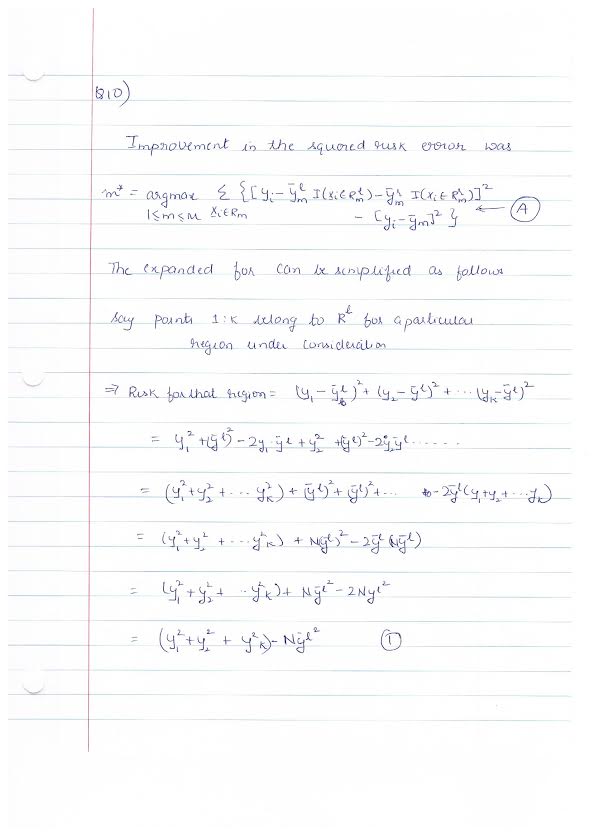 Q10)
Improvement in the squared risk error was
m* = argmax Σ {[y_i - ȳ_m^l I(x_i∈R_m^l) - ȳ_m^r I(x_i∈R_m^r)]^2
1≤m≤M x_i∈R_m - [y_i - ȳ_m]^2 } ← (A)
The expanded for can be simplified as follows
say points 1:K belong to R^l for a particular
region under consideration
⇒ Risk for that region = (y_1 - ȳ^l)^2 + (y_2 - ȳ^l)^2 + ... (y_K - ȳ^l)^2
= y_1^2 + (ȳ^l)^2 - 2y_1 ȳ^l + y_2^2 + (ȳ^l)^2 - 2y_2 ȳ^l ......
= (y_1^2 + y_2^2 + ... y_K^2) + (ȳ^l)^2 + (ȳ^l)^2 + ... - 2ȳ^l (y_1 + y_2 + ... y_K)
= (y_1^2 + y_2^2 + ... y_K^2) + N(ȳ^l)^2 - 2ȳ^l (Nȳ^l)
= (y_1^2 + y_2^2 + ... y_K^2) + Nȳ^l^2 - 2Ny^l^2
= (y_1^2 + y_2^2 + y_K^2) - Nȳ^l^2 (1)